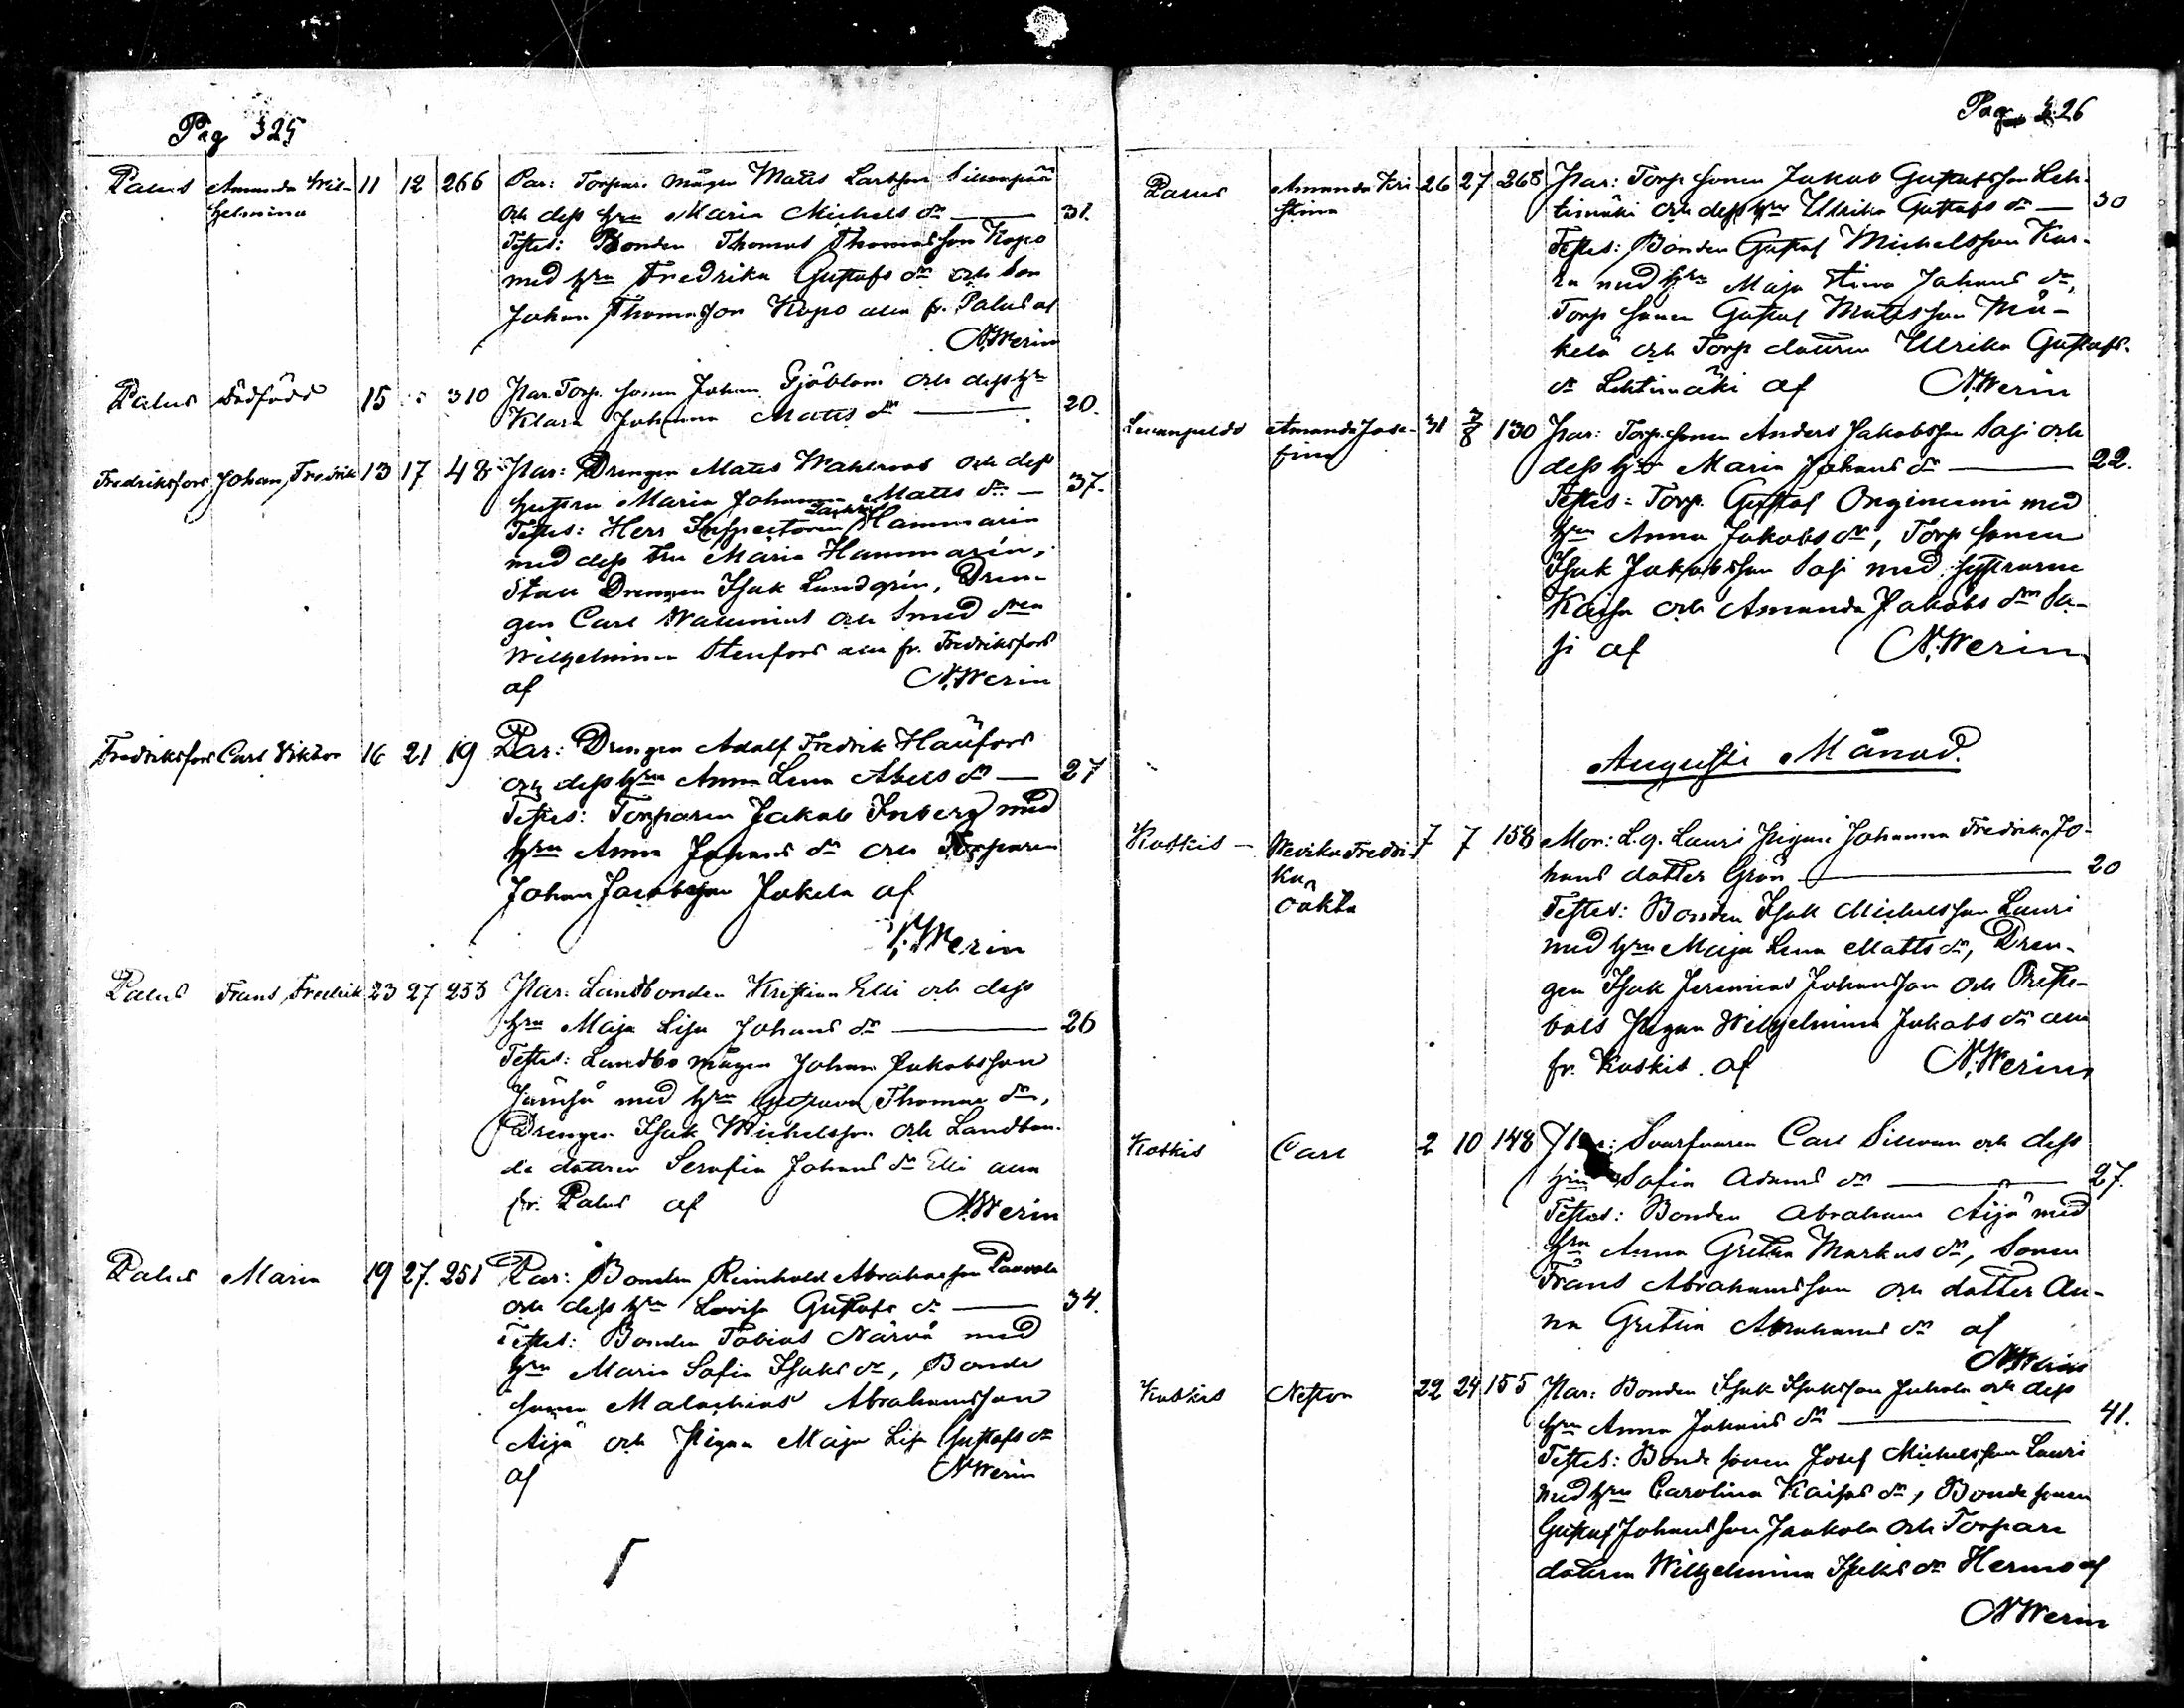 Pag 325
Palus Amanda Wil- 11 12 266 Par: Torpare mågen Matts Larsson
helmina och dess hru Maria Michels dr — 31.
Testes: Bonden Thomas Thomasson Kopo
med hru Fredrika Gustafs dr och Son
Johan Thomasson Kopo alla fr. Palus af
N. Werin
Palus Dödfödd 15 310 Par. Torp. sonen Johan Sjöblom och dess hru
Klara Johanna Matts dr — 20.
Fredriksfors Johan Fredrik 13 17 48 Par: Drengen Matts Wahlroos och dess
hustru Maria Johanna Matts dr — 37.
Testes: Herr Inspectoren Hammarin
med dess fru Maria Hammarin,
Stall Drengen Isak Lundqvin, Dren-
gen Carl Wallenius och Smed dren
Wilhelmina Stenfors alla fr. Fredriksfors
af N. Werin
Fredriksfors Carl Viktor 16 21 19 Par: Drengen Adolf Fredrik Haufors
och dess hru Anna Lena Abels dr — 27
Testes: Torparen Jakob Inberg med
hru Anna Johans dr och Torparen
Johan Jacobsson Jokela af
N. Werin
Palus Frans Fredrik 23 27 233 Par: Landbonden Kristian Elli och dess
hru Maja Lisa Johans dr — 26
Testes: Landbo mågen Johan Jakobsson
Jämsä med hru Gustava Thomae dr,
Drengen Isak Michelsson och Landbon-
de dottren Serafia Johans dr Elli alla
fr. Palus af N. Werin
Palus Maria 19 27. 251 Par: Bonden Reinhold Abrahamsson Paavola
och dess hru Lovisa Gustafs dr — 34.
Testes: Bonden Tobias Närvä med
hru Maria Sofia Isaks dr, Bonde
sonen Malachias Abrahamsson
Äijä och Pigan Maja Lisa Gustafs dr
af N. Werin
Pag 326
Palus Amanda Kri- 26 27 268 Par: Torp sonen Jakob Gustafsson Leh-
stina timäki och dess hru Ulrika Gustafs dr — 30
Testes: Bonden Gustaf Michelsson Kar-
ra med hru Maja Stina Johans dr,
Torp sonen Gustaf Mattsson Mä-
kelä och Torp dottren Ulrika Gustafs-
dr Lehtimäki af N. Werin
Amanda Jose- 31 2/8 130 Par: Torp. sonen Anders Jakobsson Sasi och
fina dess hru Maria Johans dr — 22.
Testes: Torp. Gustaf Onginiemi med
hru Anna Jakobs dr, Torp sonen
Isak Jakobsson Sasi med systrarne
Kaisa och Amanda Jakobs dr Sa-
si af N. Werin
Augusti Månad.
Koskis — Wevika Fredri- 7 7 158 Mor: L.q. Lauri Pigan Johanna Fredrika Jo-
ka hans dotter Grön — 20
oäkta Testes: Bonden Isak Michelsson Lauri
med hru Maja Lena Matts dr, Dren-
gen Isak Jeremias Johansson och Preste-
bols Pigan Wilhelmina Jakobs dr alla
fr. Koskis af N. Werin
Koskis Carl 2 10 148 Par: Svarfvaren Carl Silevan och dess
hru Sofia Adams dr — 27.
Testes: Bonden Abraham Äijä med
hru Anna Gretha Markus dr, Sonen
Frans Abrahamsson och dotter An-
na Gretha Abrahams dr af
N. Werin
Koskis Nestor 22 24 155 Par: Bonden Isak Isaksson Juhola och dess
hru Anna Johans dr — 41.
Testes: Bonde sonen Josef Michelsson Lauri
med hru Carolina Kaisas dr, Bonde sonen
Gustaf Johansson Jaakola och Torpare
dottren Wilhelmina Isaks dr Hermo af
N. Werin